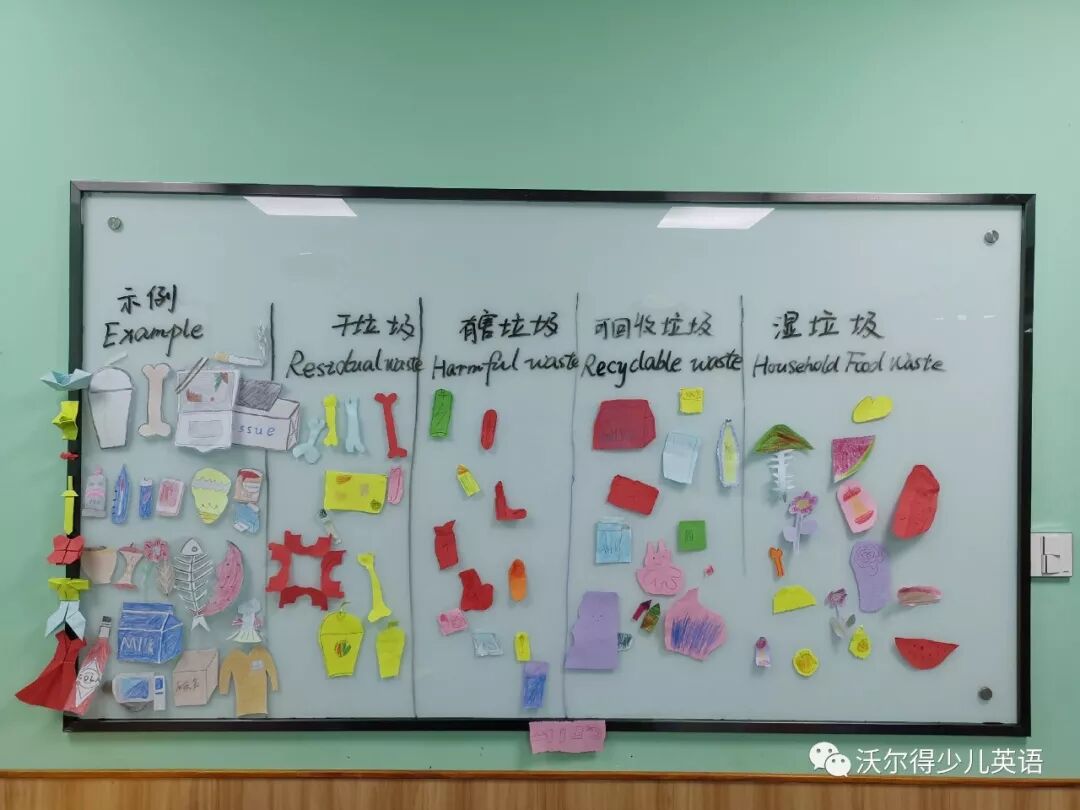 示例
Example
干垃圾
Residual waste
有害垃圾
Harmful waste
可回收垃圾
Recyclable waste
湿垃圾
Household Food Waste
issue
MILK
沃尔得少儿英语